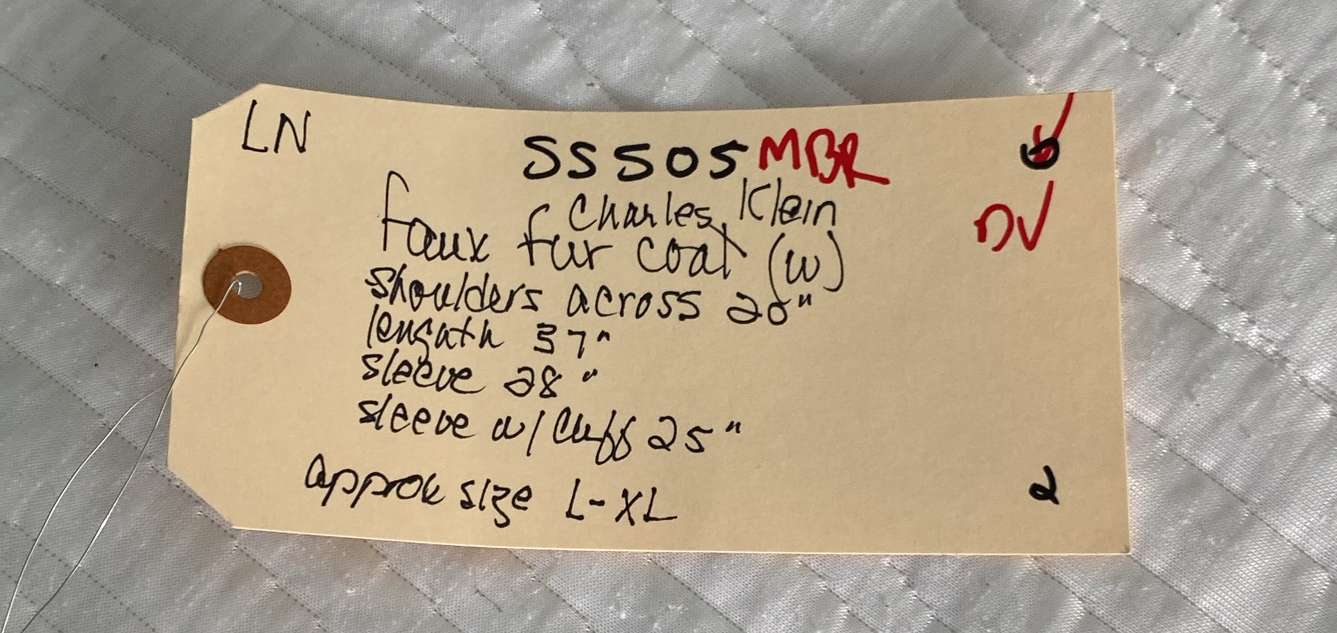 LN
SS505 MBR 6
Charles Klein
DV
faux fur coat (w)
shoulders across 20"
length 37"
sleeve 28"
sleeve w/ cuff 25"
approx size L-XL
2